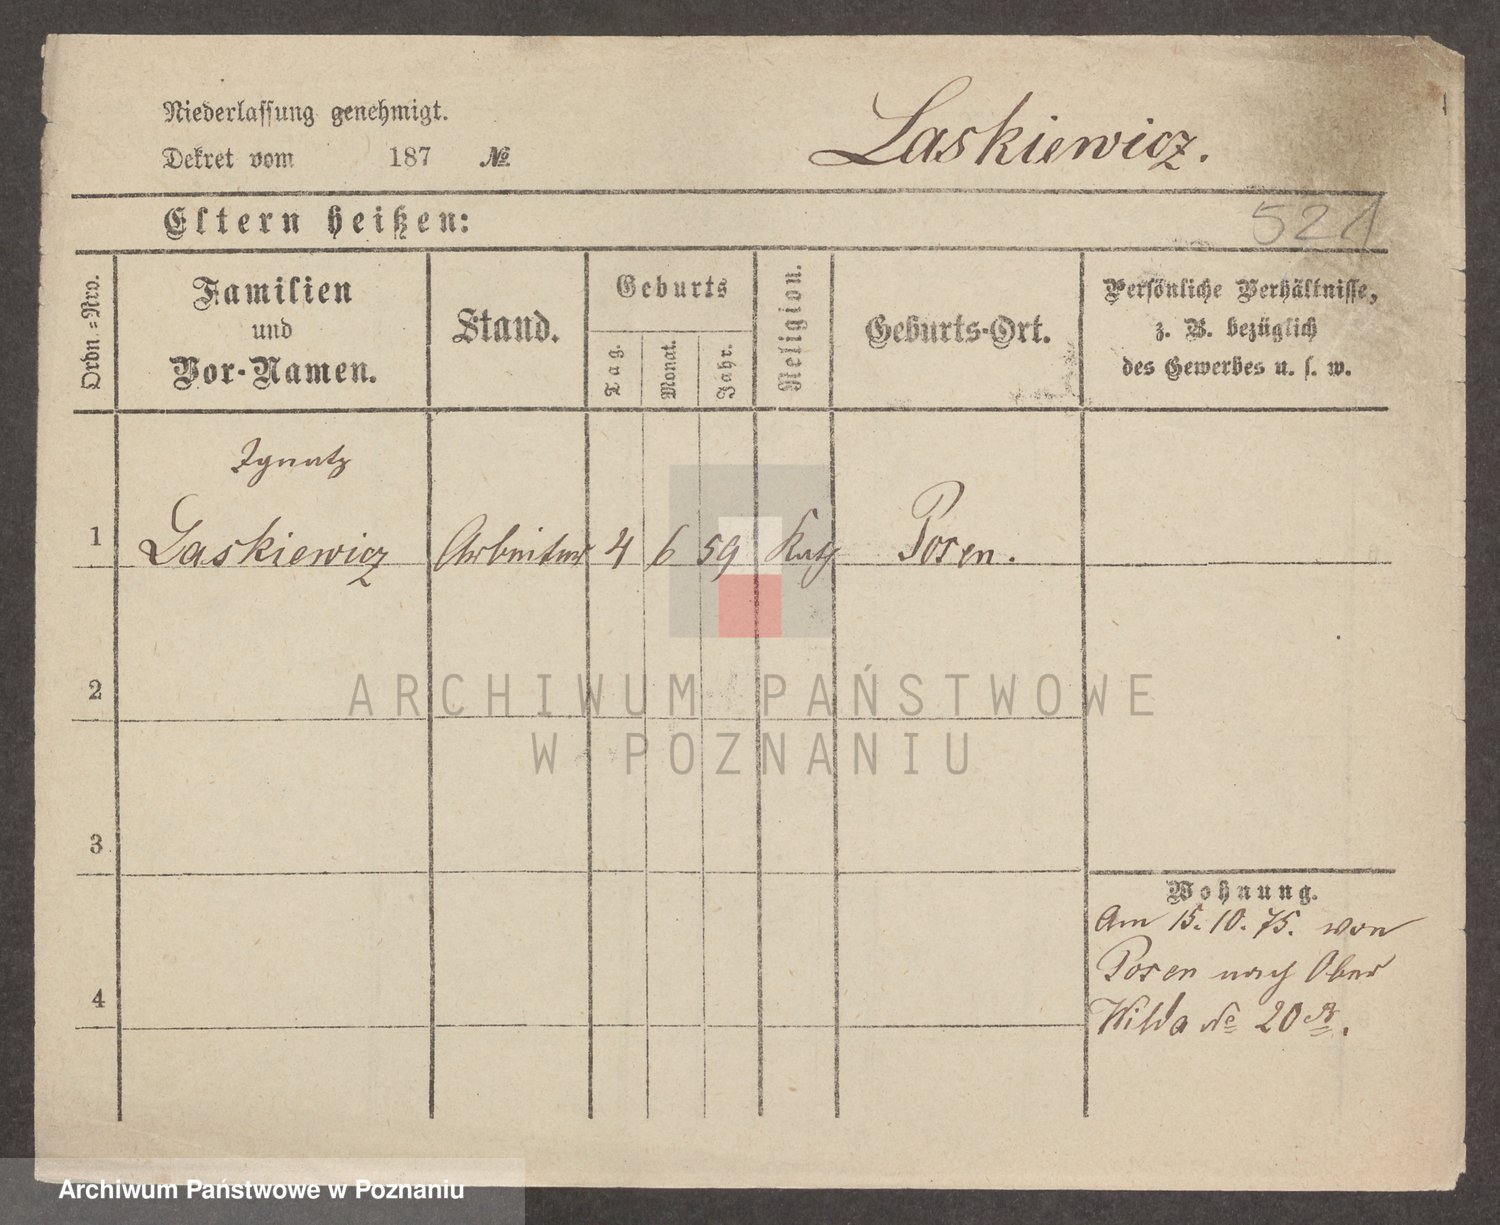 Niederlassung genehmigt.
Dekret vom 187 №
Laskiewicz.
Eltern heißen:
521
Ordn.=Nro.
Familien
und
Vor-Namen.
Stand.
Geburts
Tag.
Monat.
Jahr.
Religion.
Geburts-Ort.
Persönliche Verhältnisse,
z. B. bezüglich
des Gewerbes u. s. w.
Ignatz
1 Laskiewicz Arbeiter 4 6 59 Kath Posen.
2
ARCHIWUM PAŃSTWOWE
W POZNANIU
3
Wohnung.
Am 15.10.75. von
Posen nach Ober
4
Wilda № 20 A.
Archiwum Państwowe w Poznaniu